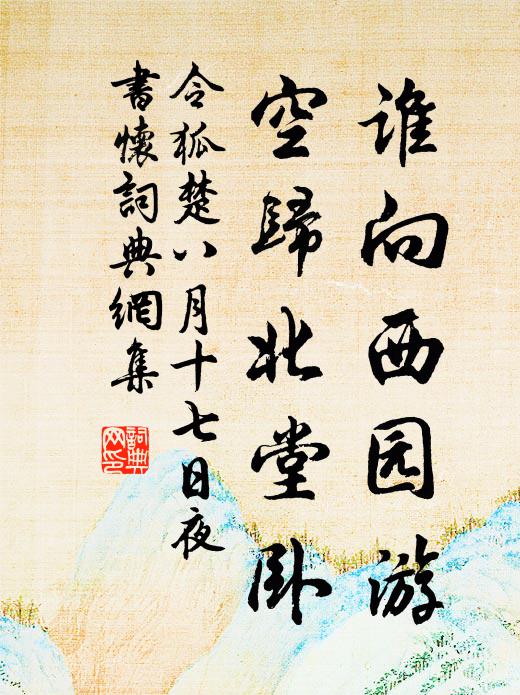 谁向西园游
空歸北堂卧
令狐楚八月十七日夜
書懷詞典網集
詞典
网印